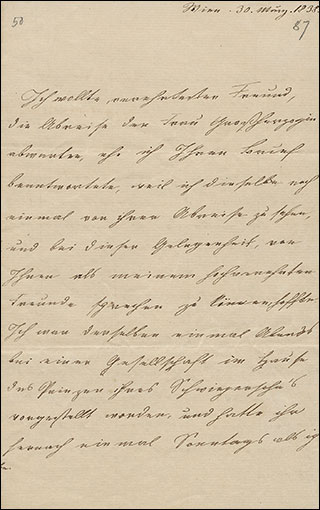 Wien 30. März. 183
50
87
Ich wollte verehrtester Freund,
die Abreise der Frau Großherzogin
abwarten, ehe ich Ihren Brief
beantwortete, weil ich dieselbe noch
einmal vor ihrer Abreise zu sehen,
und bei dieser Gelegenheit, von
Ihnen als meinem hochverehrten
Freunde sprechen zu können, hoffte.
Ich war derselben einmal Abends
bei einer Gesellschaft im Hause
des Prinzen ihres Schwiegersohn's
vorgestellt worden, und hatte ihr
hernach einmal Sonntags als ich